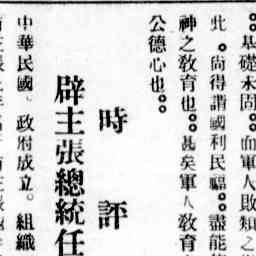 基礎未固。而軍人敗知之
此。尙得謂國利民福。盡能
神之敎育也。甚矣軍人敎育
公德心也。
時評
辟主張總統任
中華民國。政府成立。組織